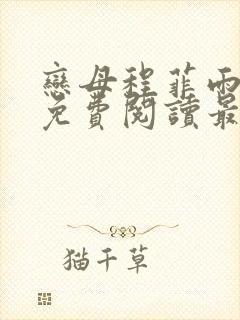 戀母程菲雨
免費閱讀最
猫千草